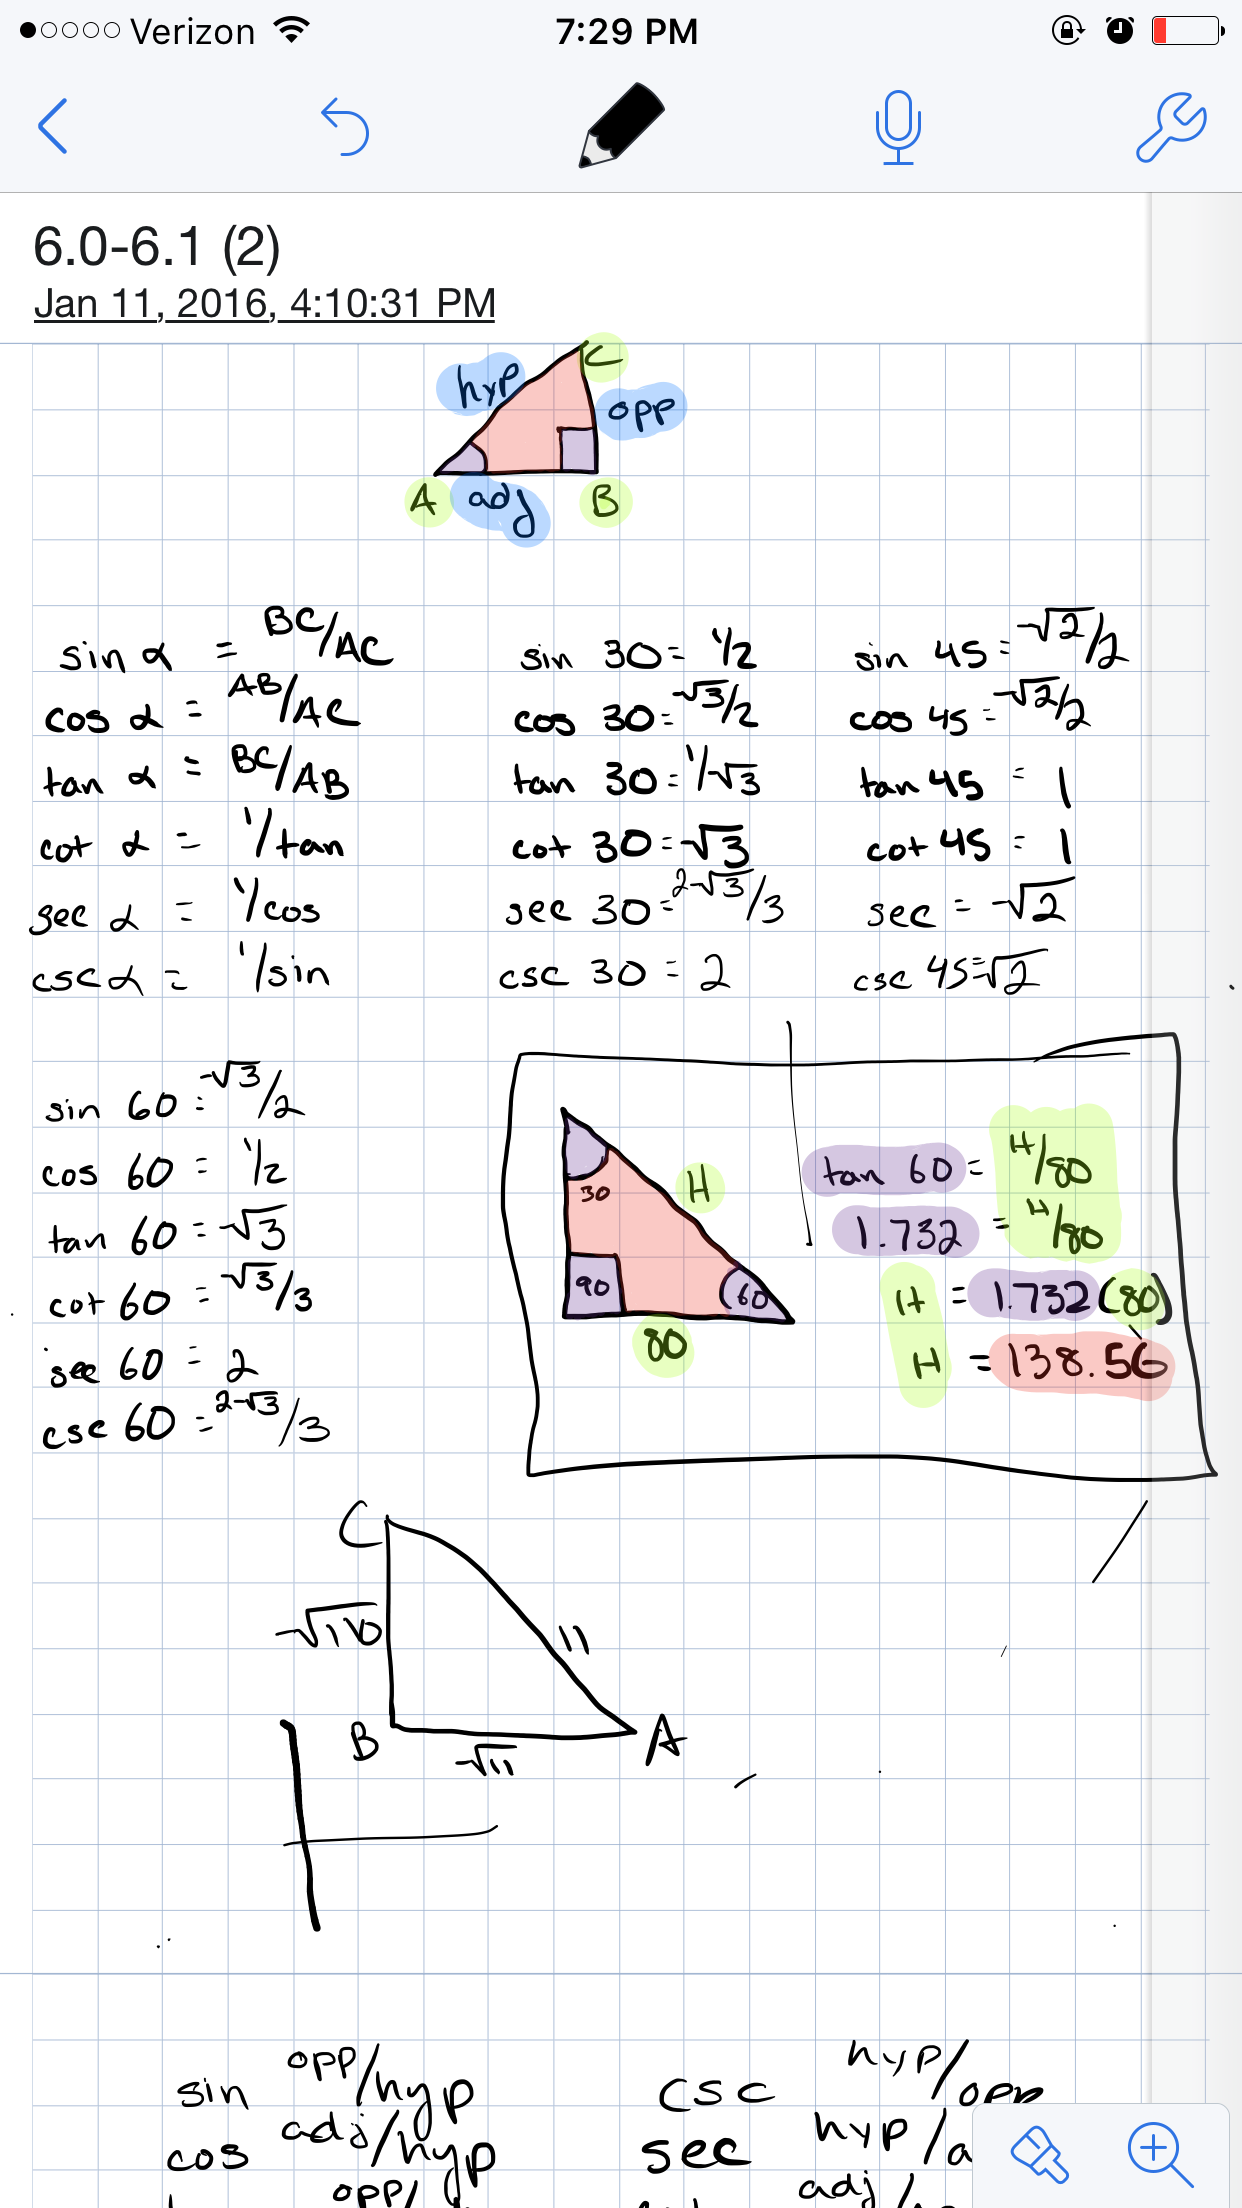 Verizon 7:29 PM
6.0-6.1 (2)
Jan 11, 2016, 4:10:31 PM
hyp C
opp
A adj B
sin α = BC/AC sin 30 = 1/2 sin 45 = √2/2
cos α = AB/AC cos 30 = √3/2 cos 45 = √2/2
tan α = BC/AB tan 30 = 1/√3 tan 45 = 1
cot α = 1/tan cot 30 = √3 cot 45 = 1
sec α = 1/cos sec 30 = 2√3/3 sec = √2
csc α = 1/sin csc 30 = 2 csc 45 = √2
sin 60 = √3/2
cos 60 = 1/2
tan 60 = √3
cot 60 = √3/3
sec 60 = 2
csc 60 = 2√3/3
30 H
90 60
80
tan 60 = H/80
1.732 = H/80
H = 1.732 (80)
H = 138.56
C
√110 11
B √11 A
sin opp/hyp csc hyp/opp
cos adj/hyp sec hyp/a
opp/ adj/